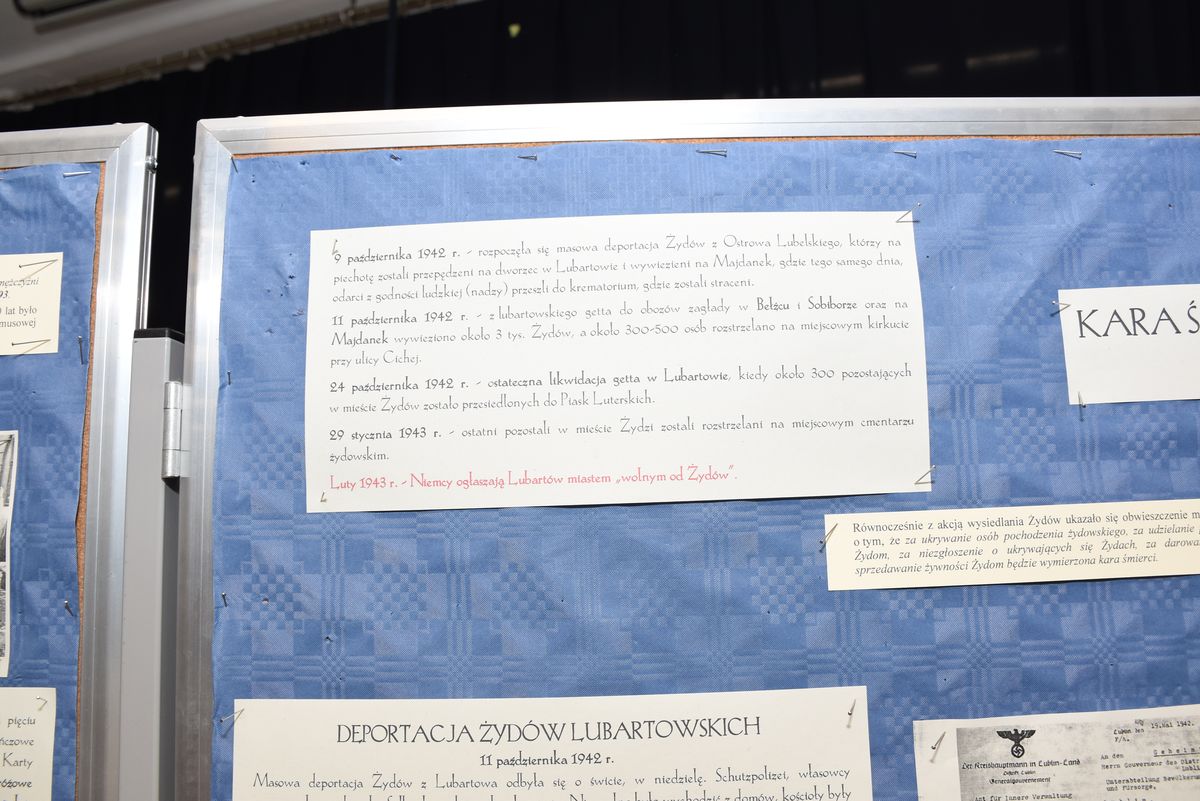 9 października 1942 r. - rozpoczęła się masowa deportacja Żydów z Ostrowa Lubelskiego, którzy na
piechotę zostali przepędzeni na dworzec w Lubartowie i wywiezieni na Majdanek, gdzie tego samego dnia,
odarci z godności ludzkiej (nadzy) przeszli do krematorium, gdzie zostali straceni.
11 października 1942 r. - z lubartowskiego getta do obozów zagłady w Bełżcu i Sobiborze oraz na
Majdanek wywieziono około 3 tys. Żydów, a około 300-500 osób rozstrzelano na miejscowym kirkucie
przy ulicy Cichej.
24 października 1942 r. - ostateczna likwidacja getta w Lubartowie, kiedy około 300 pozostających
w mieście Żydów zostało przesiedlonych do Piask Luterskich.
29 stycznia 1943 r. - ostatni pozostali w mieście Żydzi zostali rozstrzelani na miejscowym cmentarzu
żydowskim.
Luty 1943 r. - Niemcy ogłaszają Lubartów miastem „wolnym od Żydów".
mężczyźni
93.
lat było
musowej
KARA Ś
Równocześnie z akcją wysiedlania Żydów ukazało się obwieszczenie m
o tym, że za ukrywanie osób pochodzenia żydowskiego, za udzielanie
Żydom, za niezgłoszenie o ukrywających się Żydach, za darowa
sprzedawanie żywności Żydom będzie wymierzona kara śmierci.
pięciu
Karty
DEPORTACJA ŻYDÓW LUBARTOWSKICH
11 października 1942 r.
Masowa deportacja Żydów z Lubartowa odbyła się o świcie, w niedzielę. Schutzpolizei, własowcy
wychodzić z domów, kościoły były
Der Kreishauptmann in Lublin-Land
Distrikt Lublin
Generalgouvernement
Amt für Innere Verwaltung
Lublin den 19.Mai 1942.
F/H.
An den
Herrn Gouverneur des Dist
Unterabteilung Bevölker
und Fürsorge.